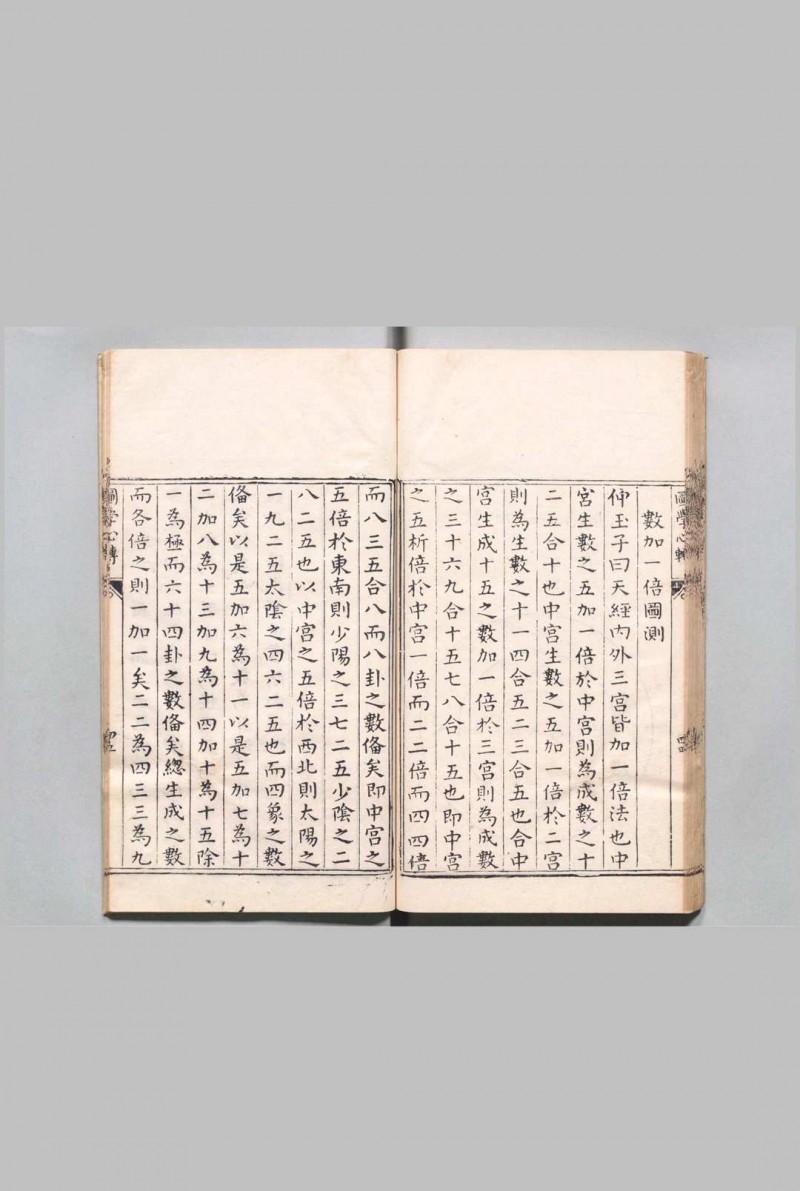 數加一倍圖測
仲玉子曰天經內外三宮皆加一倍法也中
宮生數之五加一倍於中宮則為成數之十
二五合十也中宮生數之五加一倍於二宮
則為生數之十一四合五二三合五也合中
宮生成十五之數加一倍於三宮則為成數
之三十六九合十五七八合十五也即中宮
之五析倍於中宮一倍而二二倍而四四倍
而八三五合八而八卦之數俻矣即中宮之
五倍於東南則少陽之三七二五少陰之二
八二五也以中宮之五倍於西北則太陽之
一九二五太陰之四六二五也而四象之數
俻矣以是五加六為十一以是五加七為十
二加八為十三加九為十四加十為十五除
一為極而六十四卦之數俻矣緫生成之數
而各倍之則一加一矣二二為四三三為九
圖學心傳